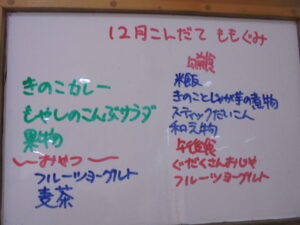 12月こんだて ももぐみ
きのこカレー
もやしのこんぶサラダ
果物
〜おやつ〜
フルーツヨーグルト
麦茶
午前食
米飯
きのことじゃが芋の煮物
スティックだいこん
和え物
午後食
ぐだくさんおじや
フルーツヨーグルト